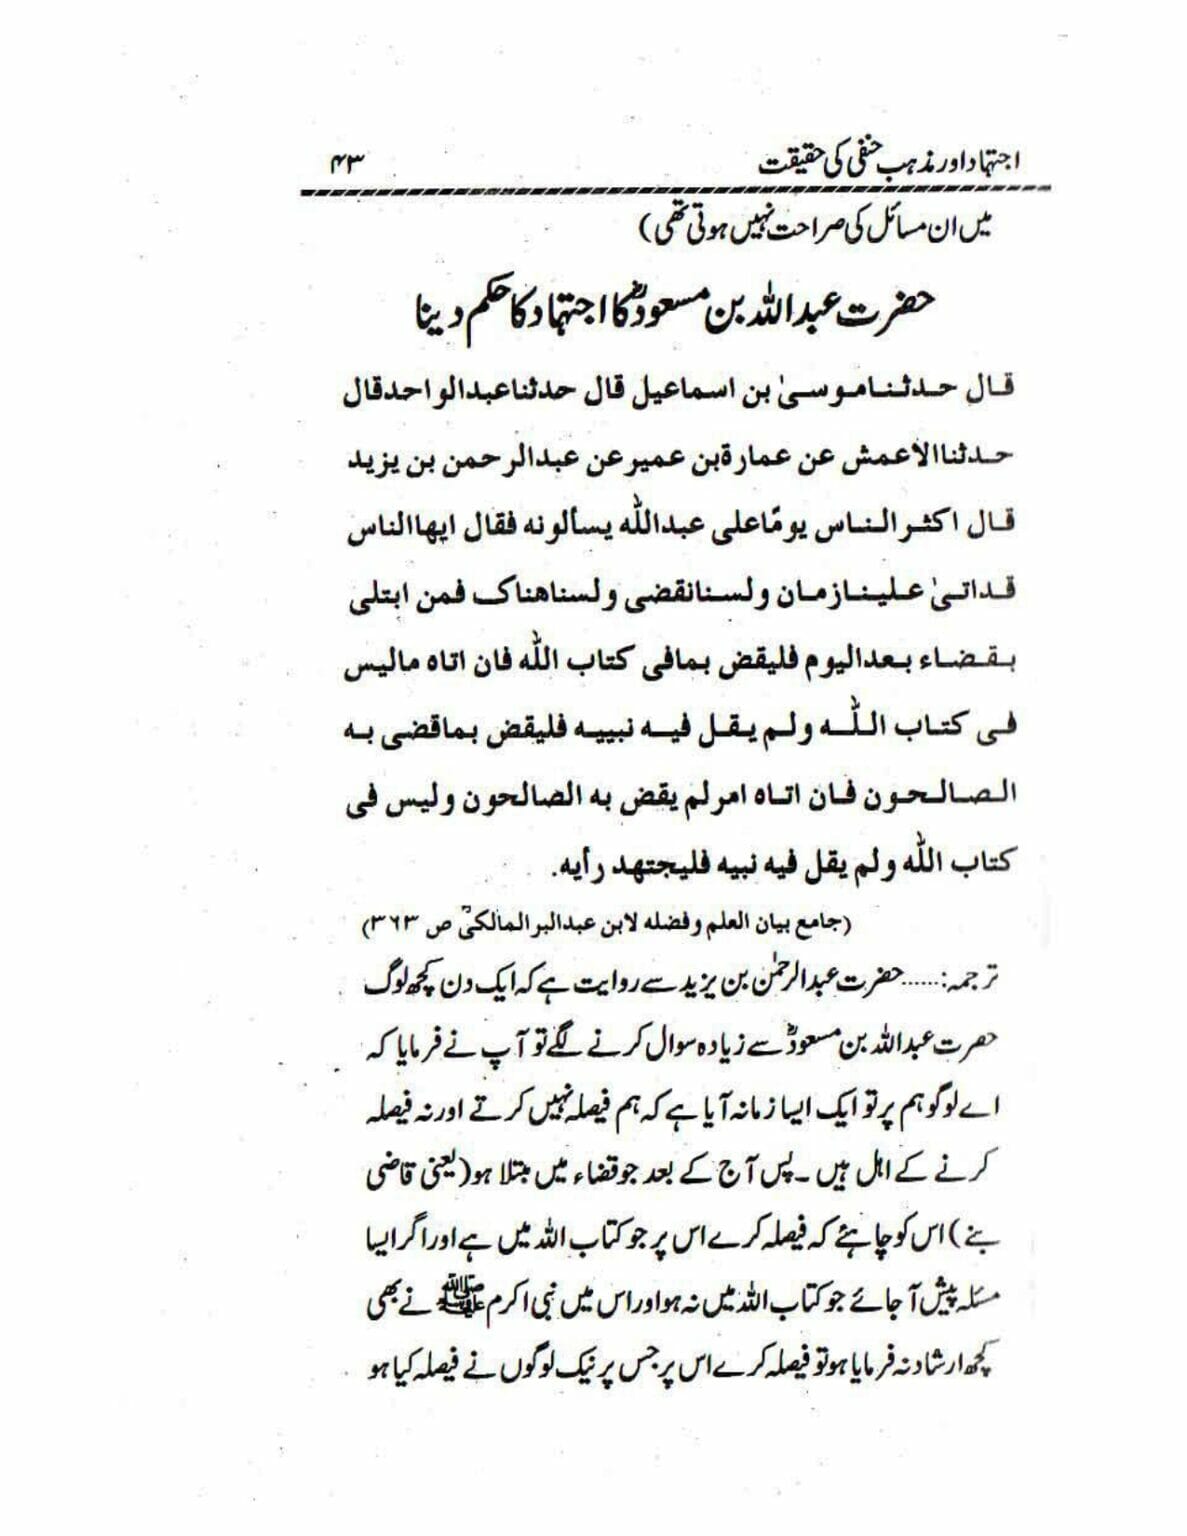 اجتہاد اور مذہب حنفی کی حقیقت ۴۳
میں ان مسائل کی صراحت نہیں ہوتی تھی)
حضرت عبداللہ بن مسعودؓ کا اجتہاد کا حکم دینا
قال حدثنا موسیٰ بن اسماعیل قال حدثنا عبدالواحد قال
حدثنا الاعمش عن عمارة بن عمیر عن عبدالرحمن بن یزید
قال اکثر الناس یومًا علی عبداللہ یسألونه فقال ایها الناس
قد اتیٰ علینا زمان ولسنا نقضی ولسنا هناک فمن ابتلی
بقضاء بعد الیوم فلیقض بما فی کتاب اللہ فان اتاه ما لیس
فی کتاب اللہ ولم یقل فیه نبییه فلیقض بما قضی به
الصالحون فان اتاه امر لم یقض به الصالحون ولیس فی
کتاب اللہ ولم یقل فیه نبیه فلیجتهد رأیه.
(جامع بیان العلم وفضله لابن عبدالبر المالکیؒ ص ۳۶۳)
ترجمہ:......حضرت عبدالرحمٰن بن یزید سے روایت ہے کہ ایک دن کچھ لوگ
حضرت عبداللہ بن مسعودؓ سے زیادہ سوال کرنے لگے تو آپ نے فرمایا کہ
اے لوگو ہم پر تو ایک ایسا زمانہ آیا ہے کہ ہم فیصلہ نہیں کرتے اور نہ فیصلہ
کرنے کے اہل ہیں ۔ پس آج کے بعد جو قضاء میں مبتلا ہو (یعنی قاضی
بنے) اس کو چاہئے کہ فیصلہ کرے اس پر جو کتاب اللہ میں ہے اور اگر ایسا
مسئلہ پیش آ جائے جو کتاب اللہ میں نہ ہو اور اس میں نبی اکرم ﷺ نے بھی
کچھ ارشاد نہ فرمایا ہو تو فیصلہ کرے اس پر جس پر نیک لوگوں نے فیصلہ کیا ہو